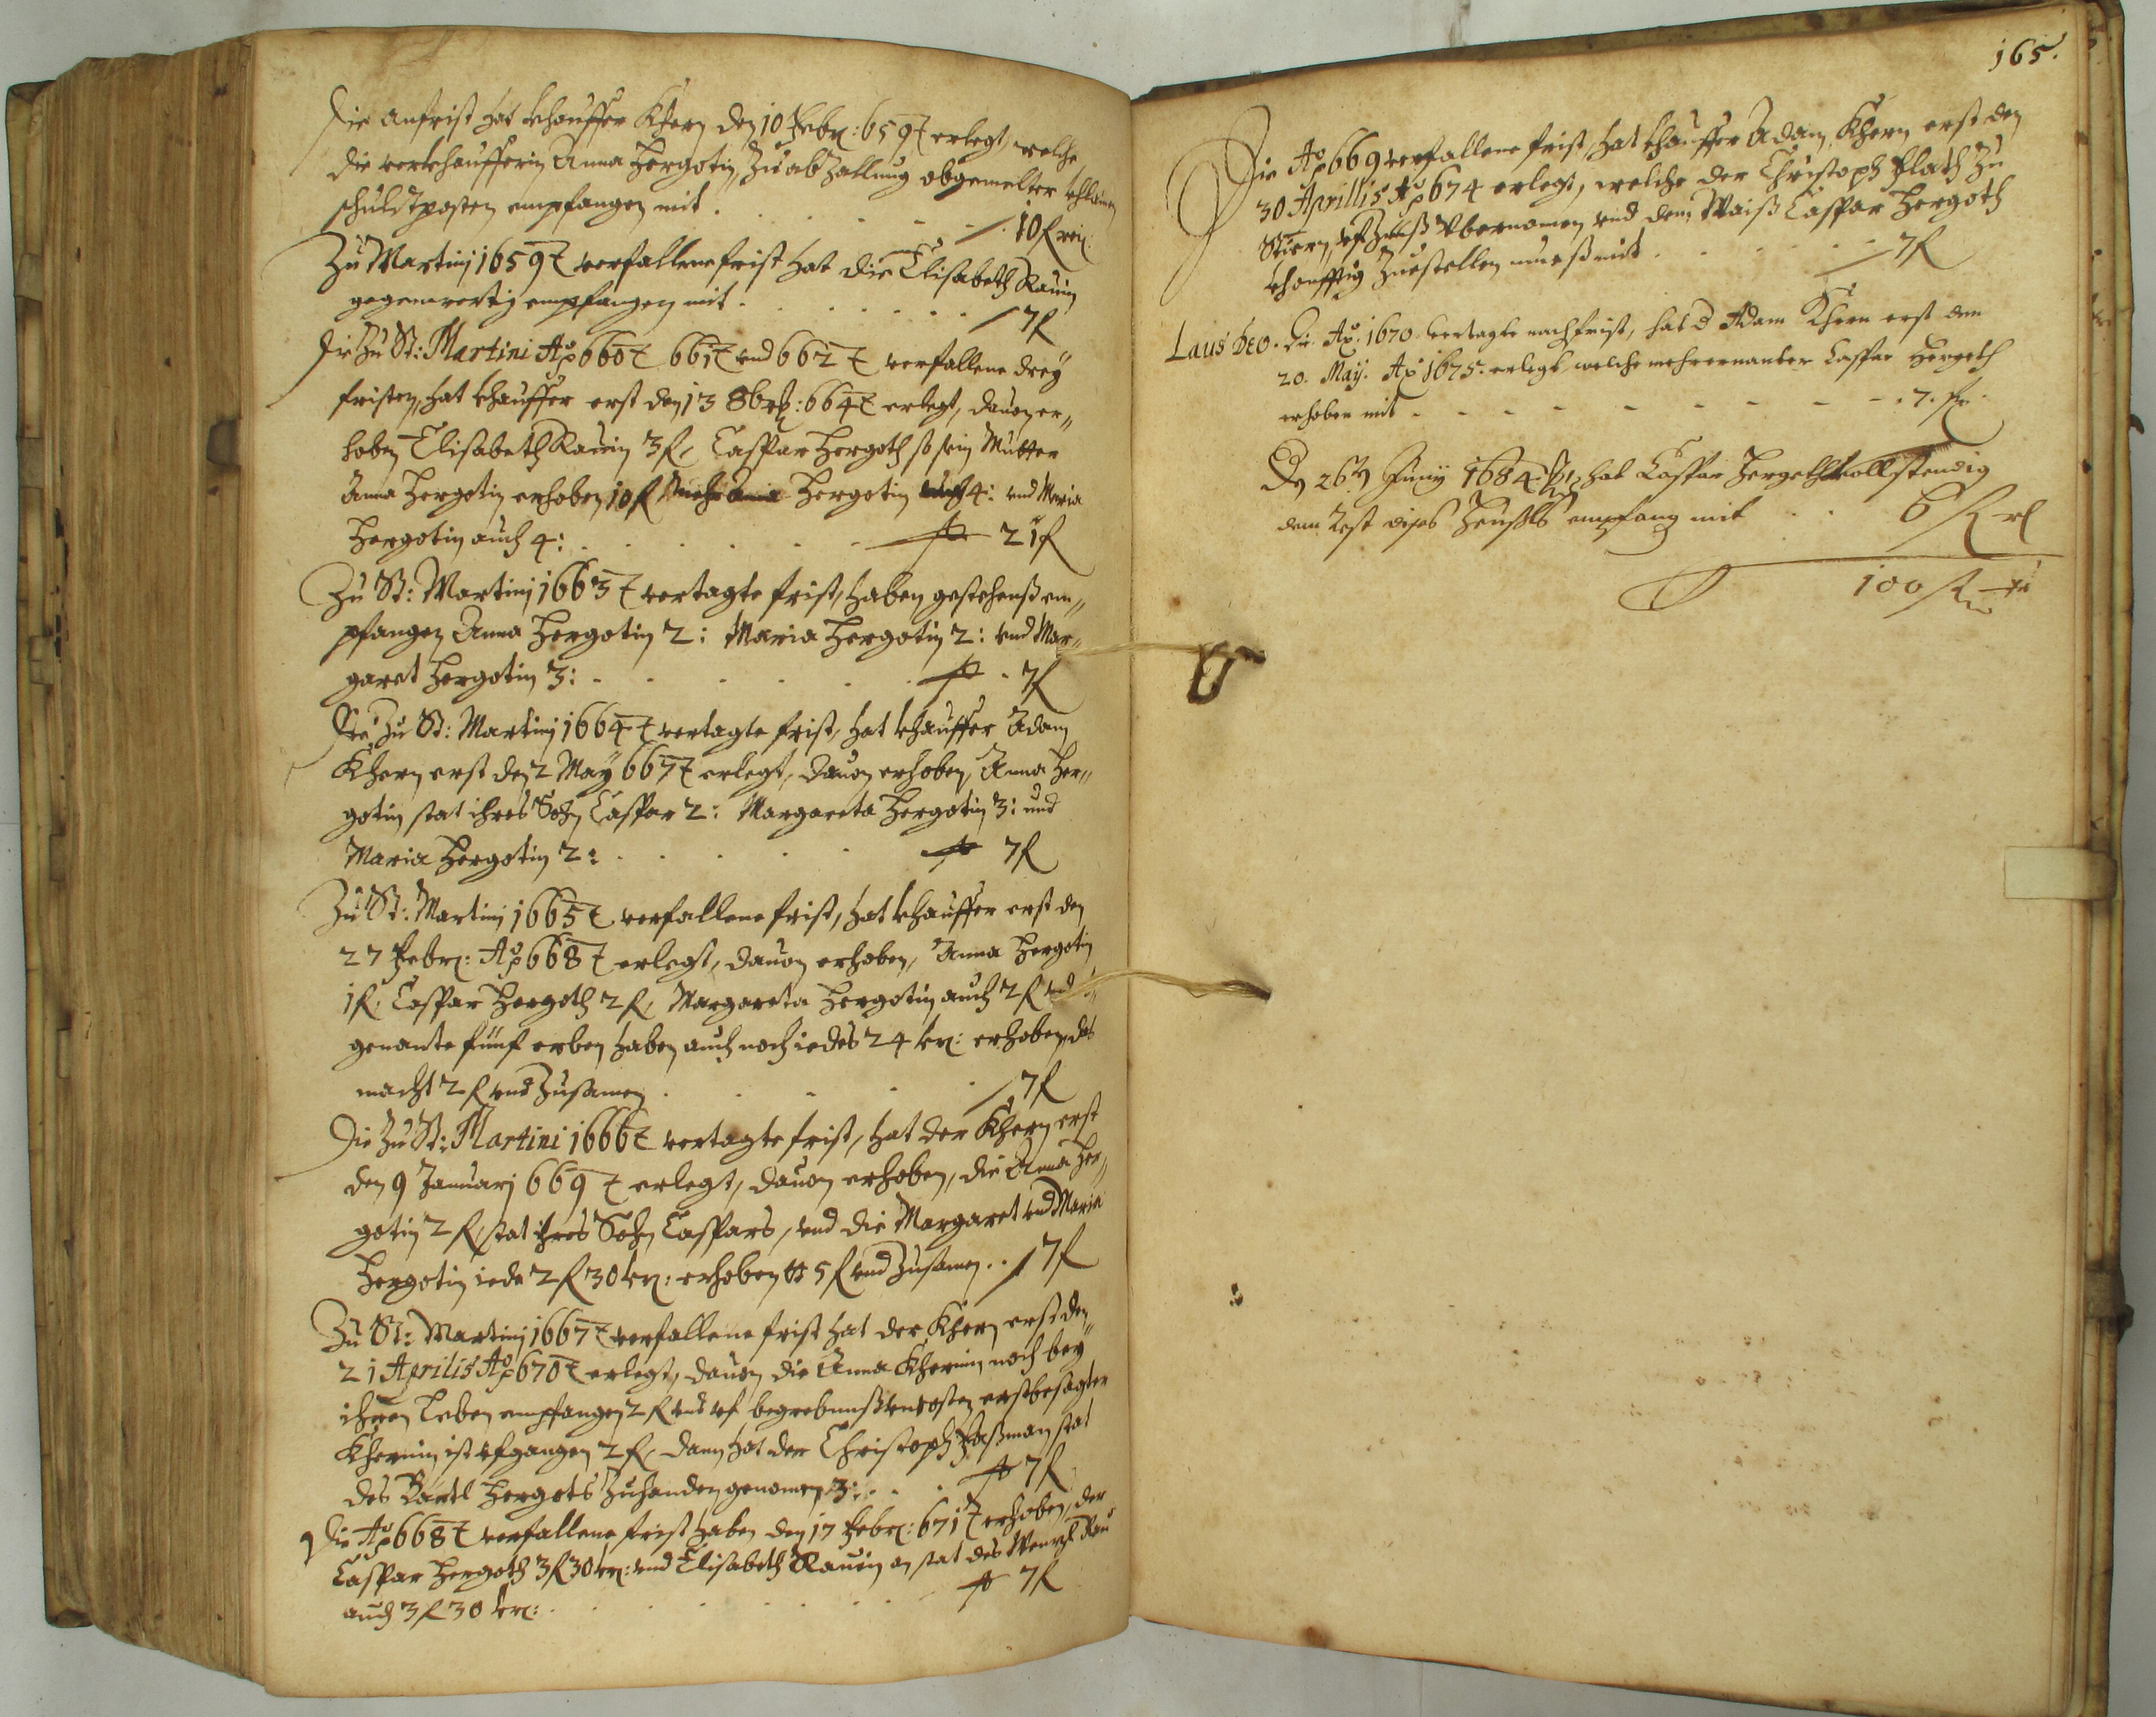 Die anfrist hat khauffer Khern den 10 Febr: 659 t erlegt, welche
die verkhaufferin Anna Hergotin, zu abzallung obgemelter
schuldtposten empfangen mit . . . . 10 f rein:
Zu Martinj 1659 t verfallene frist hat die Elisabeth Rauin
gegenwertig empfangen mit . . . . . . 7 f
Die zu St: Martini Ao 660 t 661 t vnd 662 t verfallene drey
fristen, hat khauffer erst den 13 8br: 664 t erlegt, dauon er„
hoben Elisabeth Rauin 3 f, Caspar Hergoth so sein Mutter
Anna Hergotin erhoben 10 f Hergotin auch 4: vnd Maria
Hergotin auch 4: . . . . . . 21 f
Zu St: Martinj 1663 t vertagte frist, haben gestehenß em„
pfangen Anna Hergotin 2: Maria Hergotin 2: vnd Mar„
garet Hergotin 3: . . . . . . 7 f
Die zu St: Martinj 1664 t vertagte frist, hat khauffer Adam
Khern erst den 2 May 667 t erlegt, dauon erhoben, Anna Her„
gotin stat ihres Sohn Caspar 2: Margareta Hergotin 3: und
Maria Hergotin 2: . . . . . 7 f
Zu St: Martinj 1665 t verfallene frist, hat khauffer erst den
27 Febr: Ao 668 t erlegt, dauon erhoben, Anna Hergotin
1 f: Caspar Hergoth 2 f, Margareta Hergotin auch 2 f vnd
genante fünf erben haben auch noch iedes 24 kr: erhoben, das
macht 2 f vnd zusamen . . . . 7 f
Die zu St: Martini 1666 t vertagte frist, hat der Khern erst
den 9 Januarj 669 t erlegt, dauon erhoben, die Anna Her„
gotin 2 f, stat ihres Sohn Caspars, vnd die Margaret vnd Maria
Hergotin iede 2 f 30 kr: erhoben 5 f vnd zusamen . . 7 f
Zu St: Martinj 1667 t verfallene frist hat der Khern erst den
21 Aprilis Ao 670 t erlegt, dauon die Anna Khernin noch bey
ihren Leben empfangen 2 f vnd vf begrebnuß vncosten erstbesagter
Khernin ist vfgangen 2 f, dann hat der Christoph Faßman stat
des Bartl Hergots zuhanden genomen 3: . . . 7 f
Die Ao 668 t verfallene frist haben den 17 Febr: 671 t erhoben, der
Caspar Hergoth 3 f 30 kr: vnd Elisabeth Rauin an stat des Rau
auch 3 f 30 kr: . . . . . . 7 f
165.
Die Ao 669 verfallene frist, hat khauffer Adam Khern erst den
30 Aprillis Ao 674 erlegt, welche der Christoph Plath zu
vbernomen vnd dem Waiß Caspar Hergoth
khonfftig zuestellen mueß mit . . . . . 7 f
Laus Deo. Die Ao. 1670 vertagte nachfrist, hat d Adam Khern erst den
20. May. Ao 1675. erlegt, welche mehrernanter Caspar Hergoth
erhoben mit - - - - - - - . 7. f.
Den 26ten Juny 1684 hat Caspar Hergeth vollstendig
den Rest dises Heußls empfang mit . . 6 f
100 f